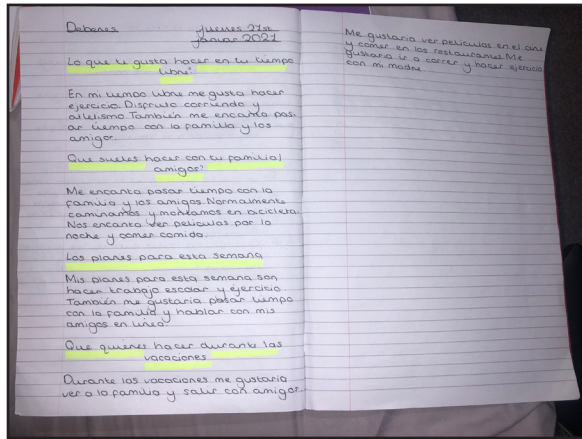 Deberes Jueves 21st
januar 2021
Lo que te gusta hacer en tu tiempo
libre?
En mi tiempo libre me gusta hacer
ejercicio. Disfruto corriendo y
atletismo. También me encanta pas-
ar tiempo con la familia y los
amigos.
Que sueles hacer con tu familia/
amigos?
Me encanta pasar tiempo con la
familia y los amigos. Normalmente
caminamos y montamos en bicicleta.
Nos encanta ver peliculas por la
noche y comer comida.
Los planes para esta semana
Mis planes para esta semana son
hacer trabajo escolar y ejercicio.
También me gustaria pasar tiempo
con la familia y hablar con mis
amigos en linea.
Que quieres hacer durante las
vacaciones
Durante las vacaciones me gustaria
ver a la familia y salir con amigos.
Me gustaria ver peliculas en el cine
y comer en los restaurantes. Me
gustaria ir a correr y hacer ejercicio
con mi madre.